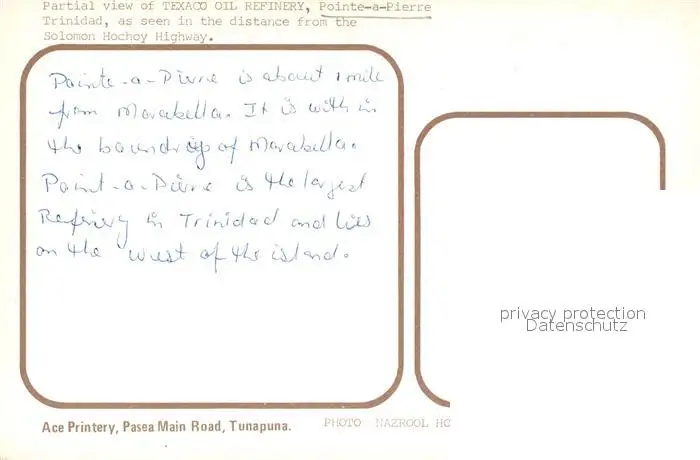 Partial view of TEXACO OIL REFINERY, Pointe-a-Pierre
Trinidad, as seen in the distance from the
Solomon Hochoy Highway.
Pointe-a-Pierre is about 1 mile
from Marabella. It is with in
the boundries of Marabella.
Point-a-Pierre is the largest
Refinery in Trinidad and lies
on the West of the island.
privacy protection
Datenschutz
Ace Printery, Pasea Main Road, Tunapuna.
PHOTO NAZROOL HO